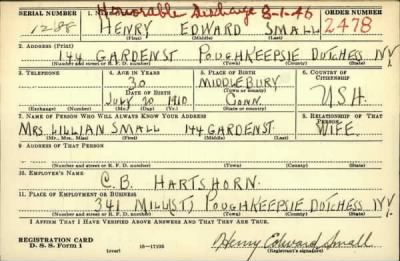 Honorable Discharge 8-1-46
SERIAL NUMBER 1. NAME (Print) ORDER NUMBER
1288 HENRY EDWARD SMALL 2478
(First) (Middle) (Last)
2. ADDRESS (Print)
144 GARDENST POUGHKEEPSIE DUTCHESS N.Y.
(Number and street or R. F. D. number) (Town) (County) (State)
3. TELEPHONE 4. AGE IN YEARS 5. PLACE OF BIRTH 6. COUNTRY OF CITIZENSHIP
30 MIDDLEBURY
DATE OF BIRTH (Town or county)
JULY 20 1910 CONN. U.S.A.
(Exchange) (Number) (Mo.) (Day) (Yr.) (State or country)
7. NAME OF PERSON WHO WILL ALWAYS KNOW YOUR ADDRESS 8. RELATIONSHIP OF THAT PERSON
MRS. LILLIAN SMALL 144 GARDENST. WIFE
(Mr., Mrs., Miss) (First) (Middle) (Last)
9. ADDRESS OF THAT PERSON
(Number and street or R. F. D. number) (Town) (County) (State)
10. EMPLOYER'S NAME
C. B. HARTSHORN
11. PLACE OF EMPLOYMENT OR BUSINESS
341 MILL ST, POUGHKEEPSIE DUTCHESS N.Y.
(Number and street or R. F. D. number) (Town) (County) (State)
I AFFIRM THAT I HAVE VERIFIED ABOVE ANSWERS AND THAT THEY ARE TRUE.
REGISTRATION CARD
D. S. S. Form 1 (over) 16-17105 Henry Edward Small
(Registrant's signature)